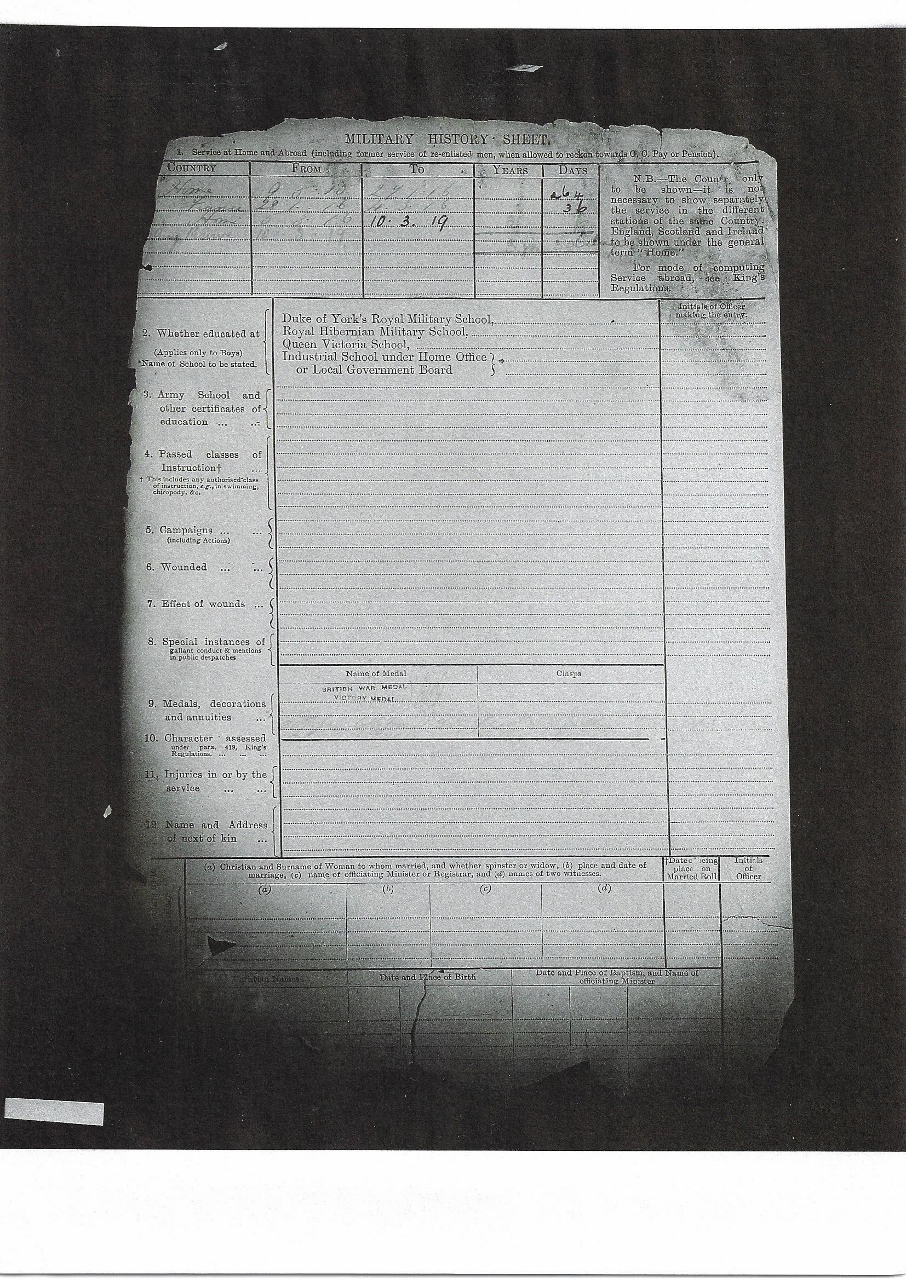 MILITARY HISTORY SHEET.
1. Service at Home and Abroad (including former service of re-enlisted men, when allowed to reckon towards G. C. Pay or Pension).
COUNTRY FROM TO YEARS DAYS
Home 264
36
10. 3. 19
N.B.—The Country only
to be shown—it is not
necessary to show separately
the service in the different
stations of the same Country.
England, Scotland and Ireland
to be shown under the general
term "Home."
For mode of computing
Service abroad, see King's
Regulations.
Initials of Officer
making the entry.
2. Whether educated at
(Applies only to Boys)
*Name of School to be stated.
Duke of York's Royal Military School,
Royal Hibernian Military School,
Queen Victoria School,
Industrial School under Home Office
or Local Government Board
3. Army School and
other certificates of
education ... ...
4. Passed classes of
Instruction† ...
† This includes any authorised class
of instruction, e.g., in swimming,
chiropody, &c.
5. Campaigns ... ...
(including Actions)
6. Wounded ... ...
7. Effect of wounds ...
8. Special instances of
gallant conduct & mentions
in public despatches
Name of Medal Clasps
BRITISH WAR MEDAL
VICTORY MEDAL
9. Medals, decorations
and annuities ...
10. Character assessed
under para. 419, King's
Regulations. ... ...
11, Injuries in or by the
service ... ...
12. Name and Address
of next of kin ...
(a) Christian and Surname of Woman to whom married, and whether spinster or widow, (b) place and date of
marriage, (c) name of officiating Minister or Registrar, and (d) names of two witnesses.
Date being
place on
Married Roll
Initials
of
Officer
(a) (b) (c) (d)
Names Date and Place of Birth
Date and Place of Baptism, and Name of
officiating Minister